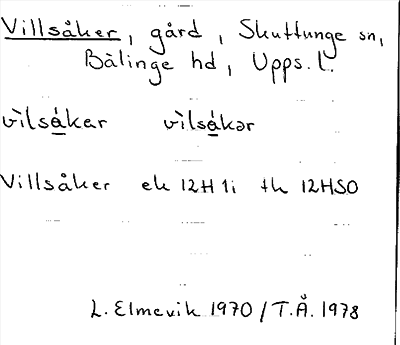 Villsåker, gård, Skuttunge sn,
Bälinge hd, Upps. l.
vìlsákar vìlsákər
Villsåker ek 12H 1i tk 12HSO
L. Elmevik 1970 / T.Å. 1978